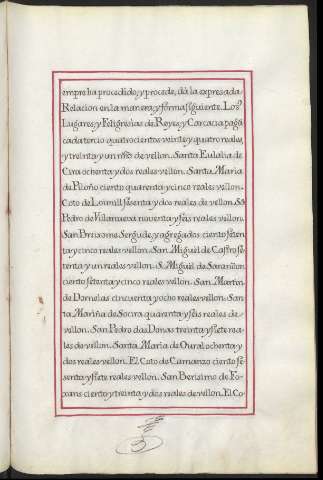 empre ha procedido, y procede, dà la expresada
Relacion en la manera, y forma siguiente. Los
Lugares, y Feligresias de Reyes, y Carcacia paga
cada tercio quatrocientos veinte, y quatro reales,
y treinta y un mrs de vellon. Santa Eulalia de
Cira ochenta y dos reales vellon. Santa Maria
de Piloño ciento quarenta y cinco reales vellon.
Coto de Loimil sesenta y dos reales de vellon. Sn
Pedro de Villanueva noventa y seis reales vellon.
San Breixome Sergude, y agregados ciento seten
ta y cinco reales vellon. San Miguel de Castro se
tenta y un reales vellon. S. Miguel de Sarandon
ciento setenta y cinco reales vellon. San Martin
de Dornelas cincuenta y ocho reales vellon. San
ta Mariña de quarenta y seis reales de
vellon. San Pedro das Donas treinta y siete rea
les de vellon. Santa Maria de Oural ochenta y
dos reales vellon. El Coto de Camanzo ciento se
senta y siete reales vellon. San Berisimo de Fo
xans ciento y treinta y dos reales de vellon. El Co